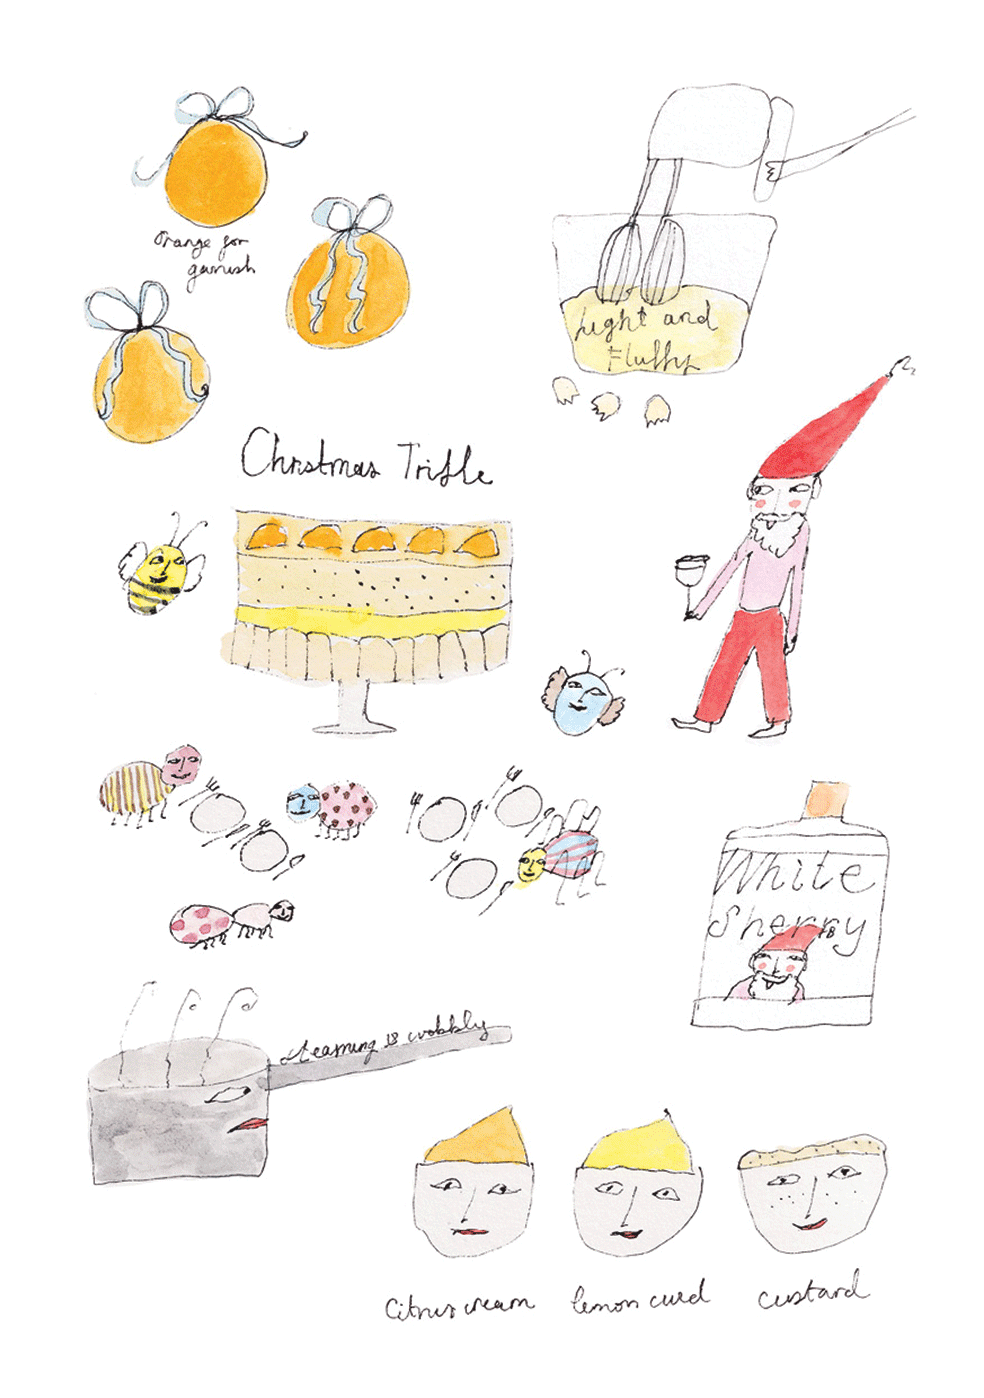 Orange for
garnish
Light and
Fluffy
Christmas Trifle
White
Sherry
steaming is wobbly
Citrus cream
lemon curd
custard